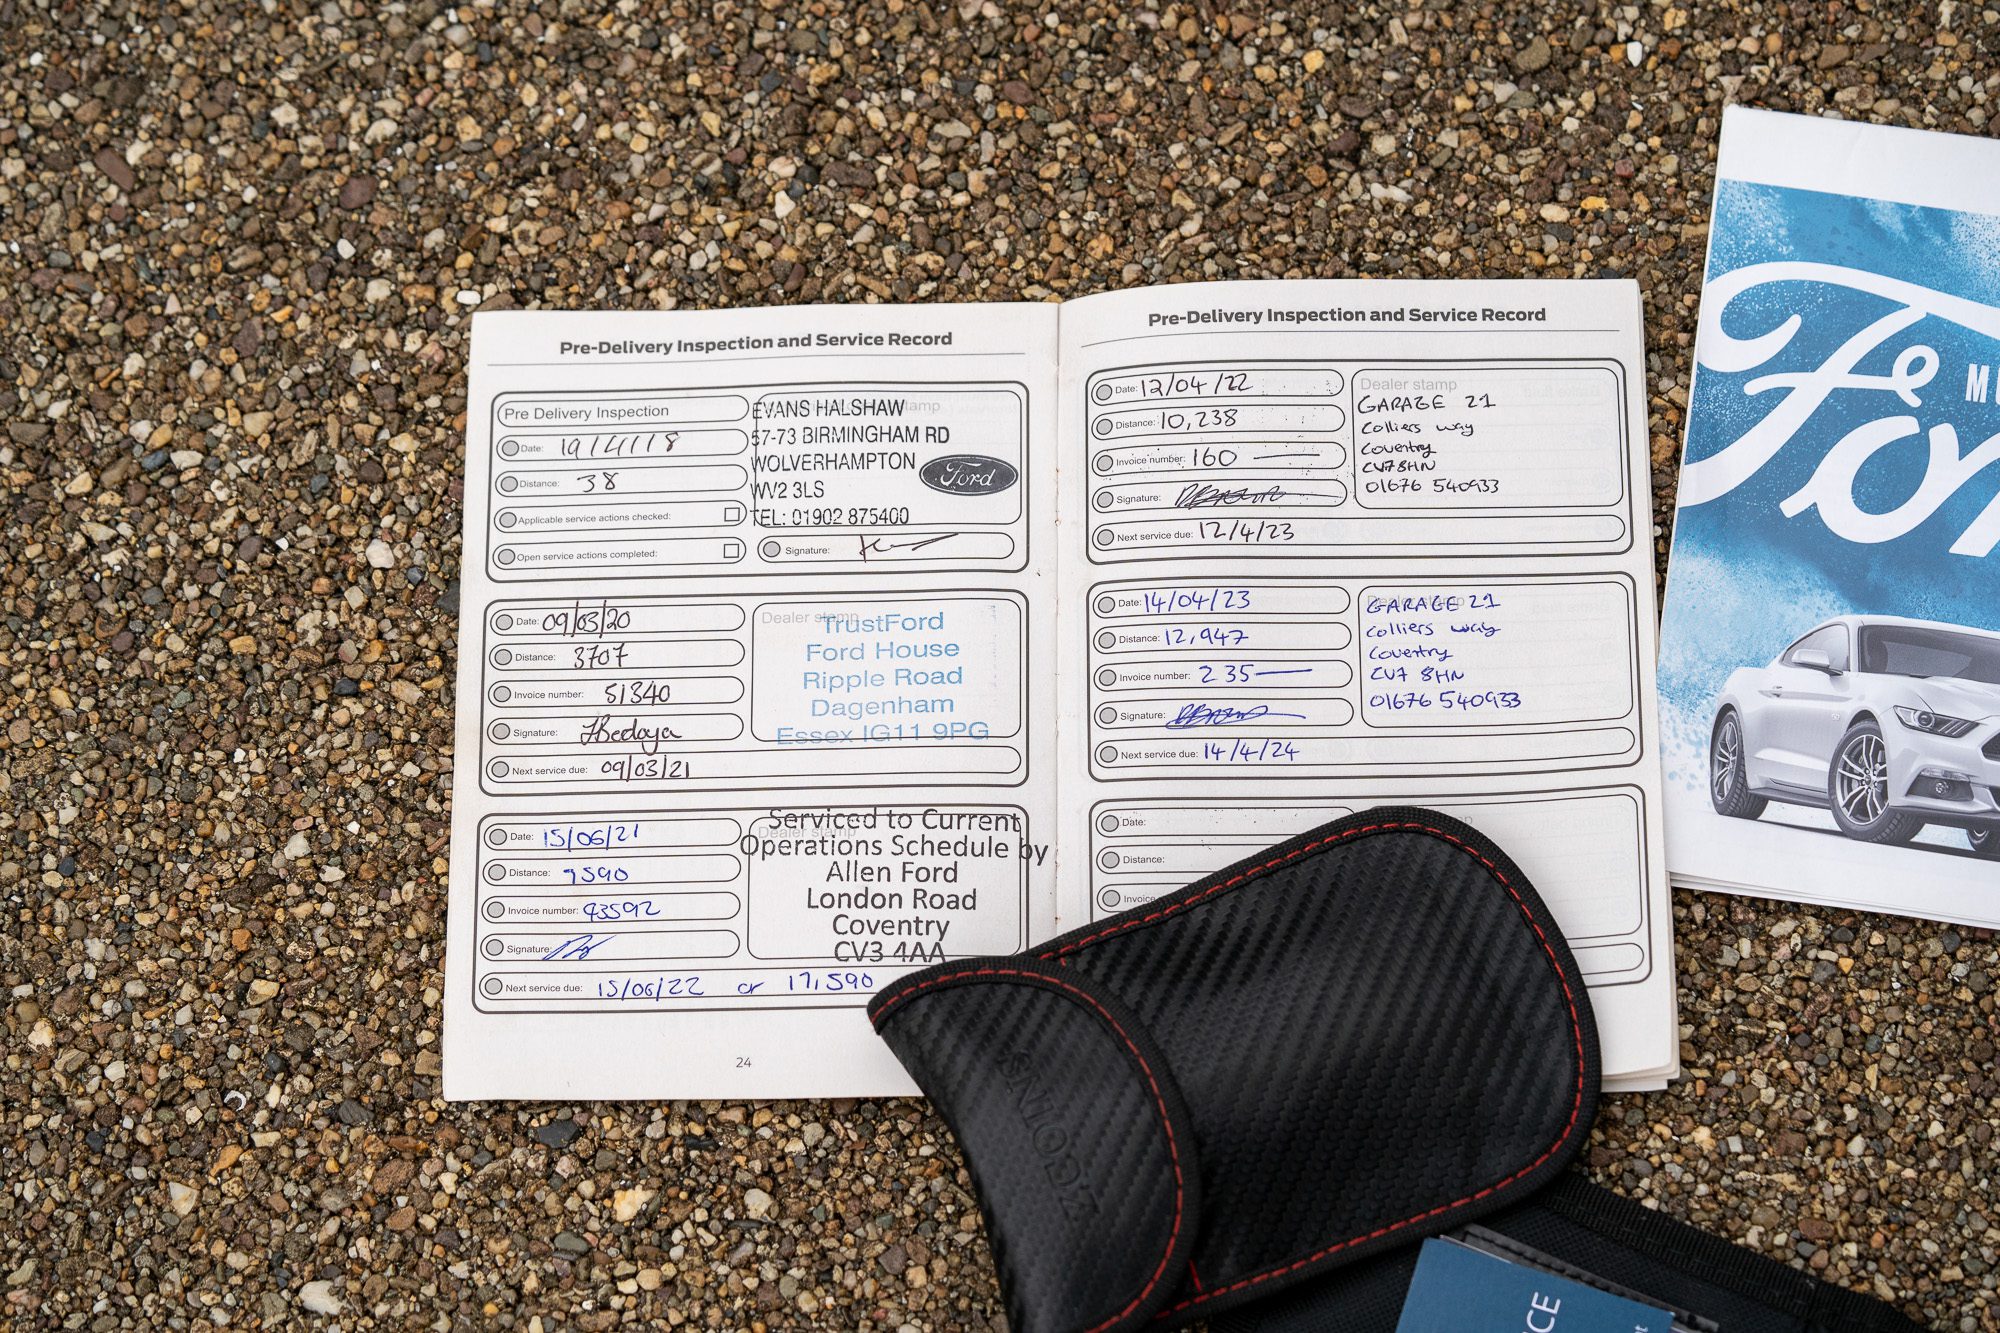 Pre-Delivery Inspection and Service Record
Pre Delivery Inspection
Date: 19/4/18
Distance: 38
Applicable service actions checked:
Open service actions completed:
EVANS HALSHAW
57-73 BIRMINGHAM RD
WOLVERHAMPTON
WV2 3LS
TEL: 01902 875400
Ford
Signature:
Date: 09/03/20
Distance: 3707
Invoice number: 51340
Signature: JBedoya
Next service due: 09/03/21
Dealer stamp
TrustFord
Ford House
Ripple Road
Dagenham
Essex IG11 9PG
Date: 15/06/21
Distance: 7590
Invoice number: 93592
Signature:
Next service due: 15/06/22 or 17,590
Dealer stamp
Serviced to Current
Operations Schedule by
Allen Ford
London Road
Coventry
CV3 4AA
24
Pre-Delivery Inspection and Service Record
Date: 12/04/22
Distance: 10,238
Invoice number: 160
Signature:
Next service due: 12/4/23
Dealer stamp
GARAGE 21
Colliers way
Coventry
CV7 8HN
01676 540933
Date: 14/04/23
Distance: 12,947
Invoice number: 235
Signature:
Next service due: 14/4/24
Dealer stamp
GARAGE 21
Colliers way
Coventry
CV7 8HN
01676 540933
Date:
Distance:
Invoice
Ford